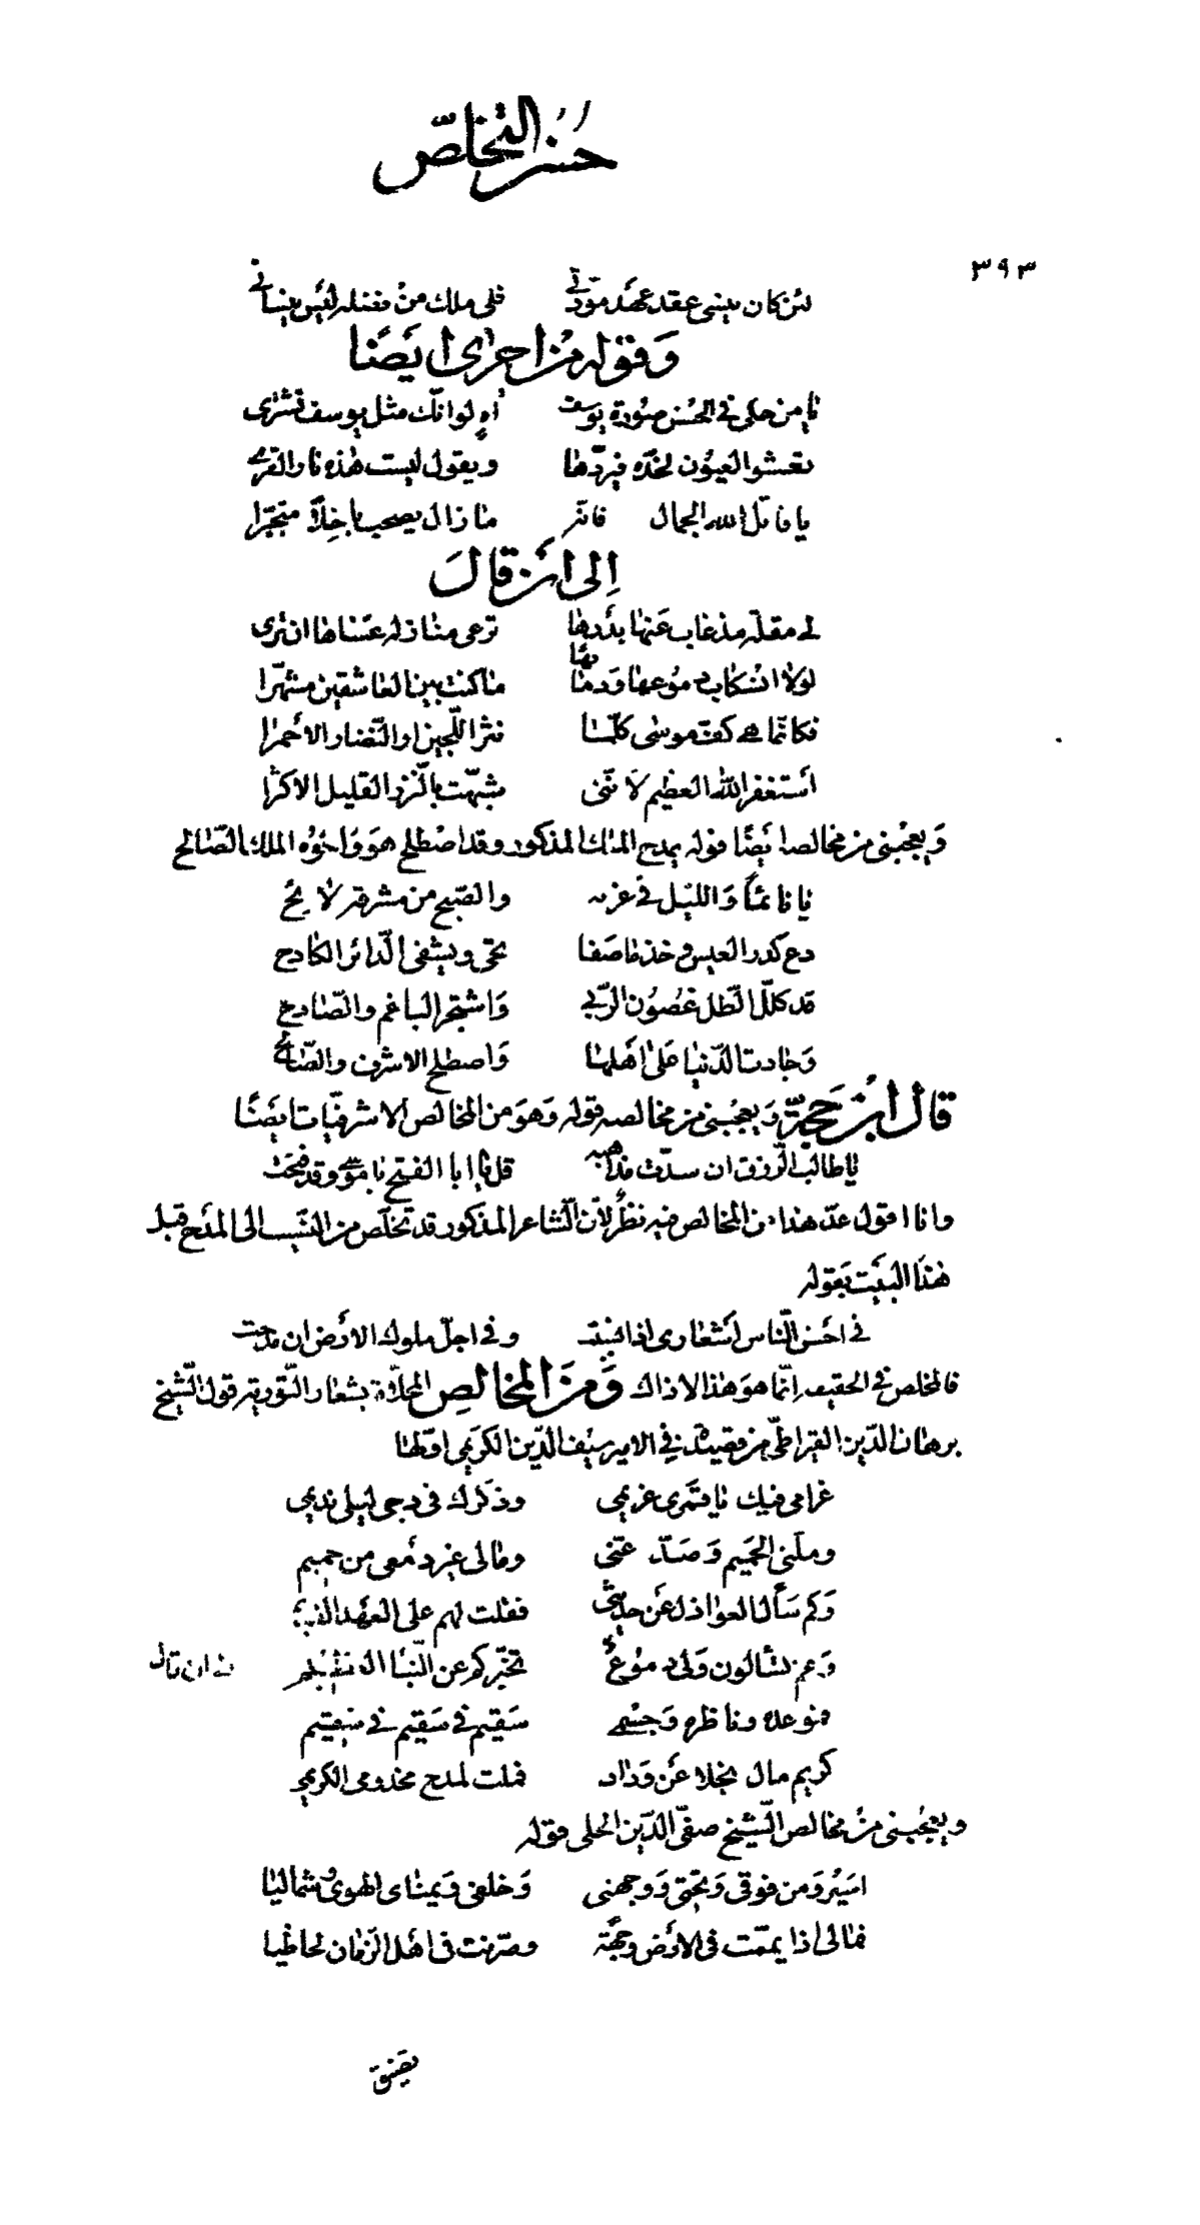 حسن التخلص
٣٩٣
لئن كان ينسى عقد عهد مودتي فلي ملك من فضله ليس ينساني
وقوله من اخرى ايضًا
يا من حكى في الحسن صورة يوسف اهٍ لو انك مثل يوسف تشترى
تعشوا العيون لخده فيردها ويقول ليست هذه نار القرى
يا قاتل الله الجمال فانه ما زال يصحب باخلًا متجبرا
الى ان قال
لي مقلة مذ غاب عنها بدرها ترعى منازله عساها ان ترى
لولا انسكاب دموعها ودمائها ما كنت بين العاشقين مشهرا
فكانما هي كف موسى كلما نثر اللجين او النضار الاحمرا
أستغفر الله العظيم لانني شبهت بالنزر القليل الاكثرا
ويعجبني من مخالصه ايضًا قوله يمدح الملك المذكور وقد اصطلح هو واخوه الملك الصالح
يا نائمًا والليل في غربه والصبح من مشرقه لائح
دع كدر العيش وخذ ما صفا حتى ويشفى الدائر الكادح
قد كلل الطل غصون الربى واشتجر الباغم والصادح
وجادت الدنيا على اهلها واصطلح الاشرف والصالح
قال ابن حجة ويعجبني من مخالصه قوله وهو من المخالص الاشرفيات ايضًا
يا طالب الرزق ان سدت مذاهبه قل يا ابا الفتح يا موسى وقد فتحت
وانا اقول عد هذا من المخالص فيه نظر لأن الشاعر المذكور قد تخلص من النسيب الى المدح قبل
هذا البيت بقوله
في احسن الناس اشعاري اذا نسبت وفي اجل ملوك الارض ان مدحت
فالمخلص في الحقيقه انما هو هذا لا ذاك ومن المخالص المحلاة بشعار التورية قول الشيخ
برهان الدين القيراطي من قصيدة في الامير سيف الدين الكريمي اولها
غرامي فيك يا قمري غريمي وذكرك في دجى ليلي نديمي
وملني الحميم وصد عني ومالي غير دمعي من حميم
وكم سأل العواذل عن حديثي فقلت لهم على العهد القديم
وعم تسالون ولي دموع تخبركم عن النبا العظيم الى ان قال
فموعده وناظره وجسمي سقيم في سقيم في سقيم
كريم مال بخلا عن ودادي فملت لمدح مخدومي الكريمي
ويعجبني من مخالص الشيخ صفي الدين الحلي قوله
اسير ومن فوقي وتحتي ووجهتي وخلفي ويمناي الهوى وشماليا
فمالي اذا يممت في الارض وجهة وصرفت في اهل الزمان لحاظيا
يضيق